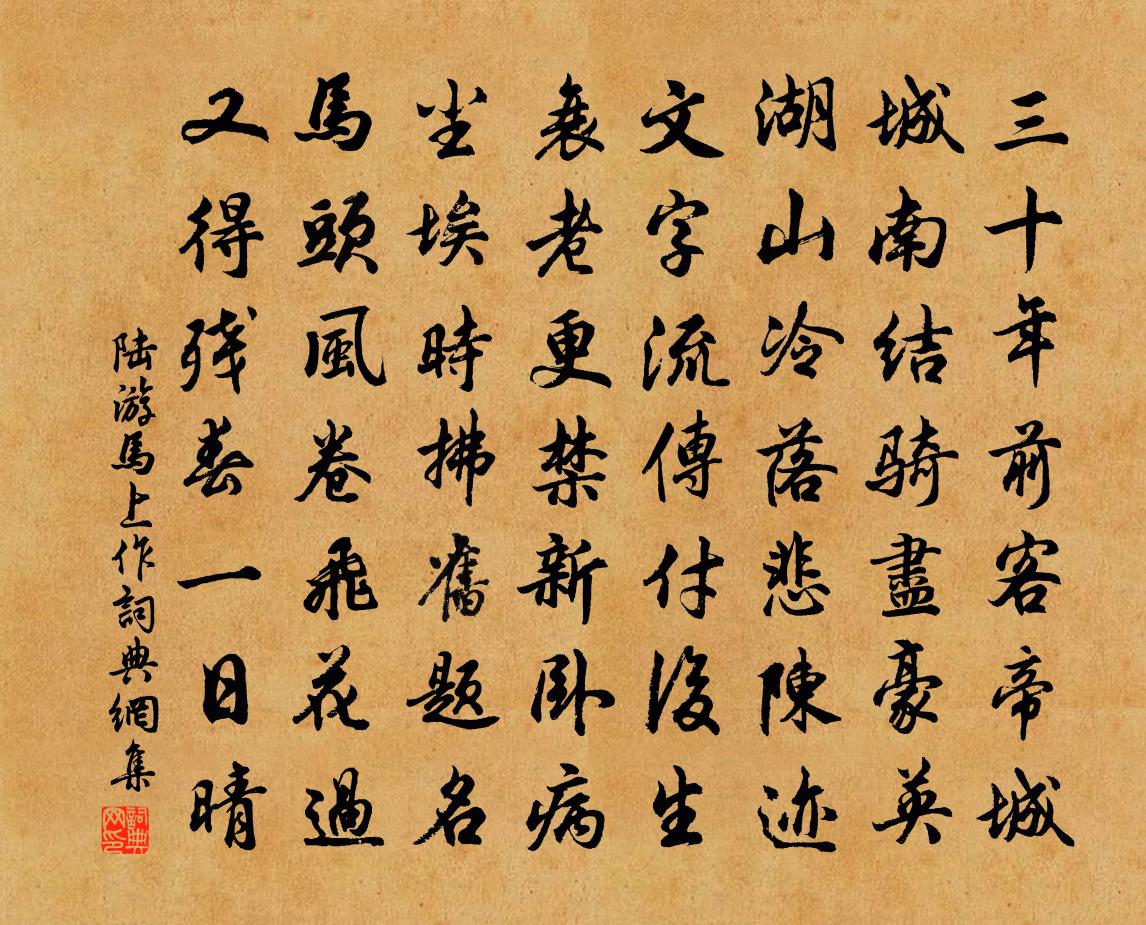 三十年前客帝城
城南結騎盡豪英
湖山冷落悲陳迹
文字流傳付後生
衰老更禁新臥病
尘埃時拂舊題名
馬頭風卷飛花過
又得残春一日晴
陆游馬上作詞典網集
詞典网印